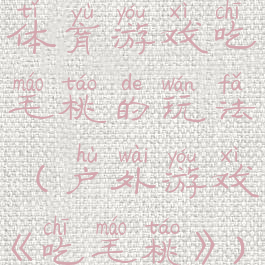 tǐ yù yóu xì chī
体育游戏吃
máo táo de wán fǎ
毛桃的玩法
hù wài yóu xì
(户外游戏
chī máo táo
《吃毛桃》)